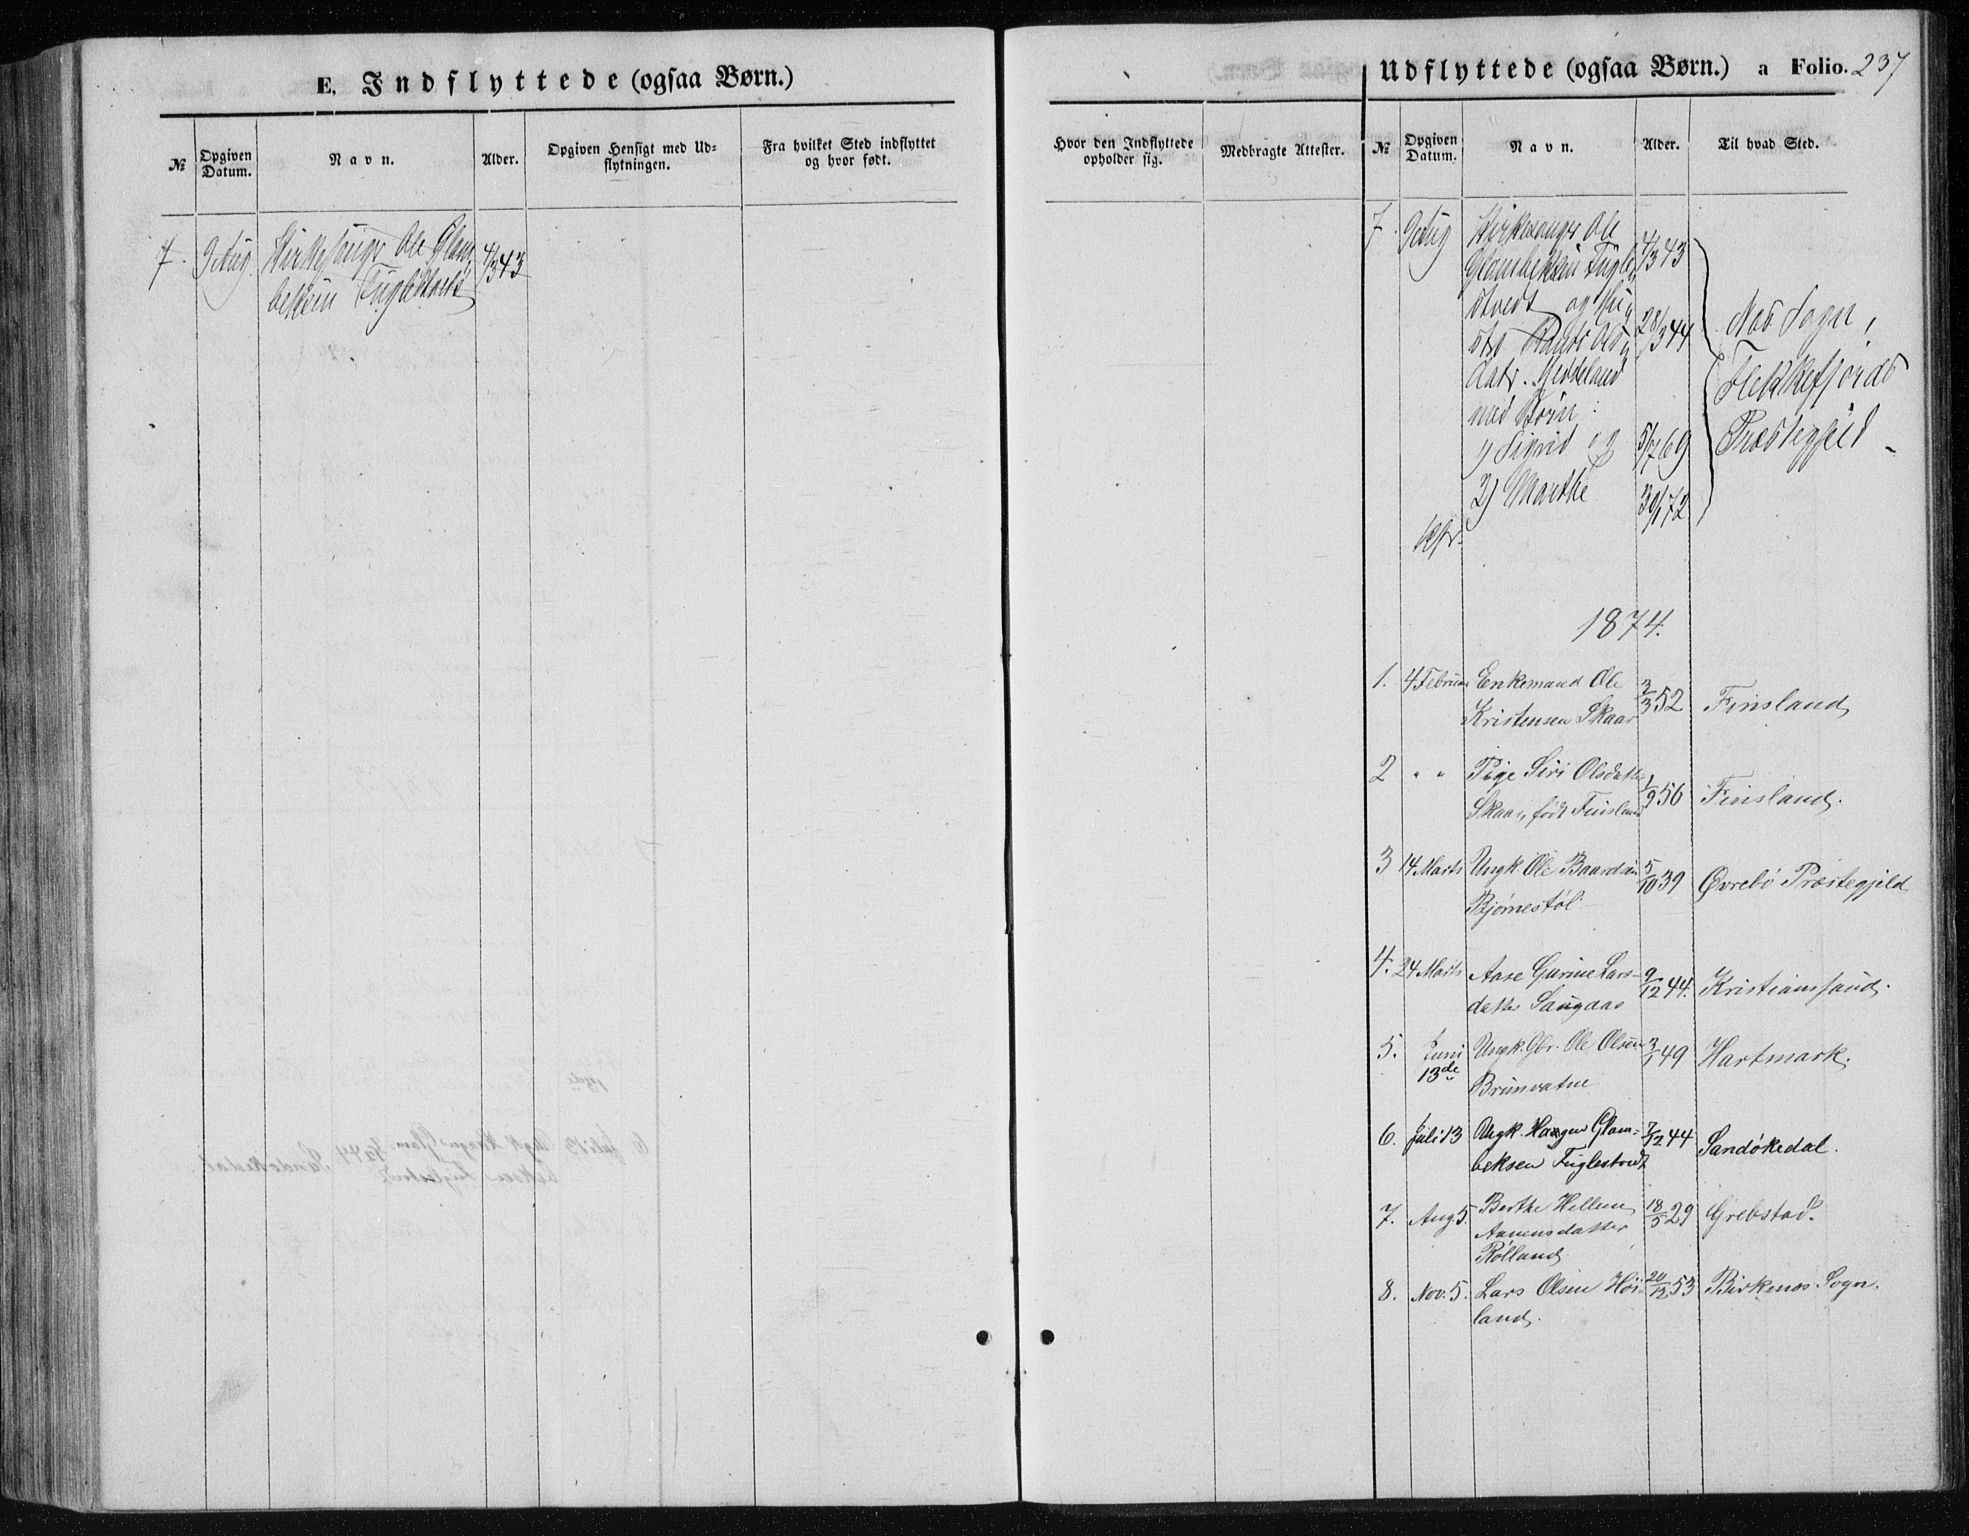 E. Indflyttede (ogsaa Børn.)
№
Opgiven Datum.
Navn.
Alder.
Opgiven Hensigt med Ud=
flytningen.
Fra hvilket Sted indflyttet
og hvor født.
7. 9 Aug. Kirkesanger Ole Glam 4/3 43
beksen Fuglestvedt
Udflyttede (ogsaa Børn.) a Folio. 237
Hvor den Indflyttede
opholder sig.
Medbragte Attester.
№
Opgiven Datum.
Navn.
Alder.
Til hvad Sted.
7. 9 Aug Kirkesanger Ole 4/3 43
Glambeksen Fugle
stvedt og Hu
28/3 44
datr.
med Børn:
1) Sigrid og 5/7 69
2) Marthe 30/1 72
Næs Sogn,
Flekkefjords
Præstegjeld
1874.
1. 4 Februar Enkemand Ole 2/3 52 Finsland
Kristensen Skaar
2 " " Pige Siri Olsdatter 1/9 56 Finsland.
Skaar, født Finsland
3 14 Marts Ungk. Ole Baardsen 5/10 39 Øvrebø Præstegjeld
Bjørnestøl
4. 24 Marts Aase Gurine Lars- 9/12 44. Kristianssand.
datter Saugdas
5. Juni 13de Ungk. Gbr. Ole Olsen 3/1 49 Hartmark.
Brunvatne
6. Juli 13 Ungk. Haagen Glam- 7/12 44 Sandøkedal.
beksen Fuglestvedt
7. Aug. 5. Berthe Hellene 18/5 29 Grebstad.
Aanensdatter
Røiland
8. Nov. 5. Lars Olsen Høi- 20/12 53 Birkenæs Sogn.
land.